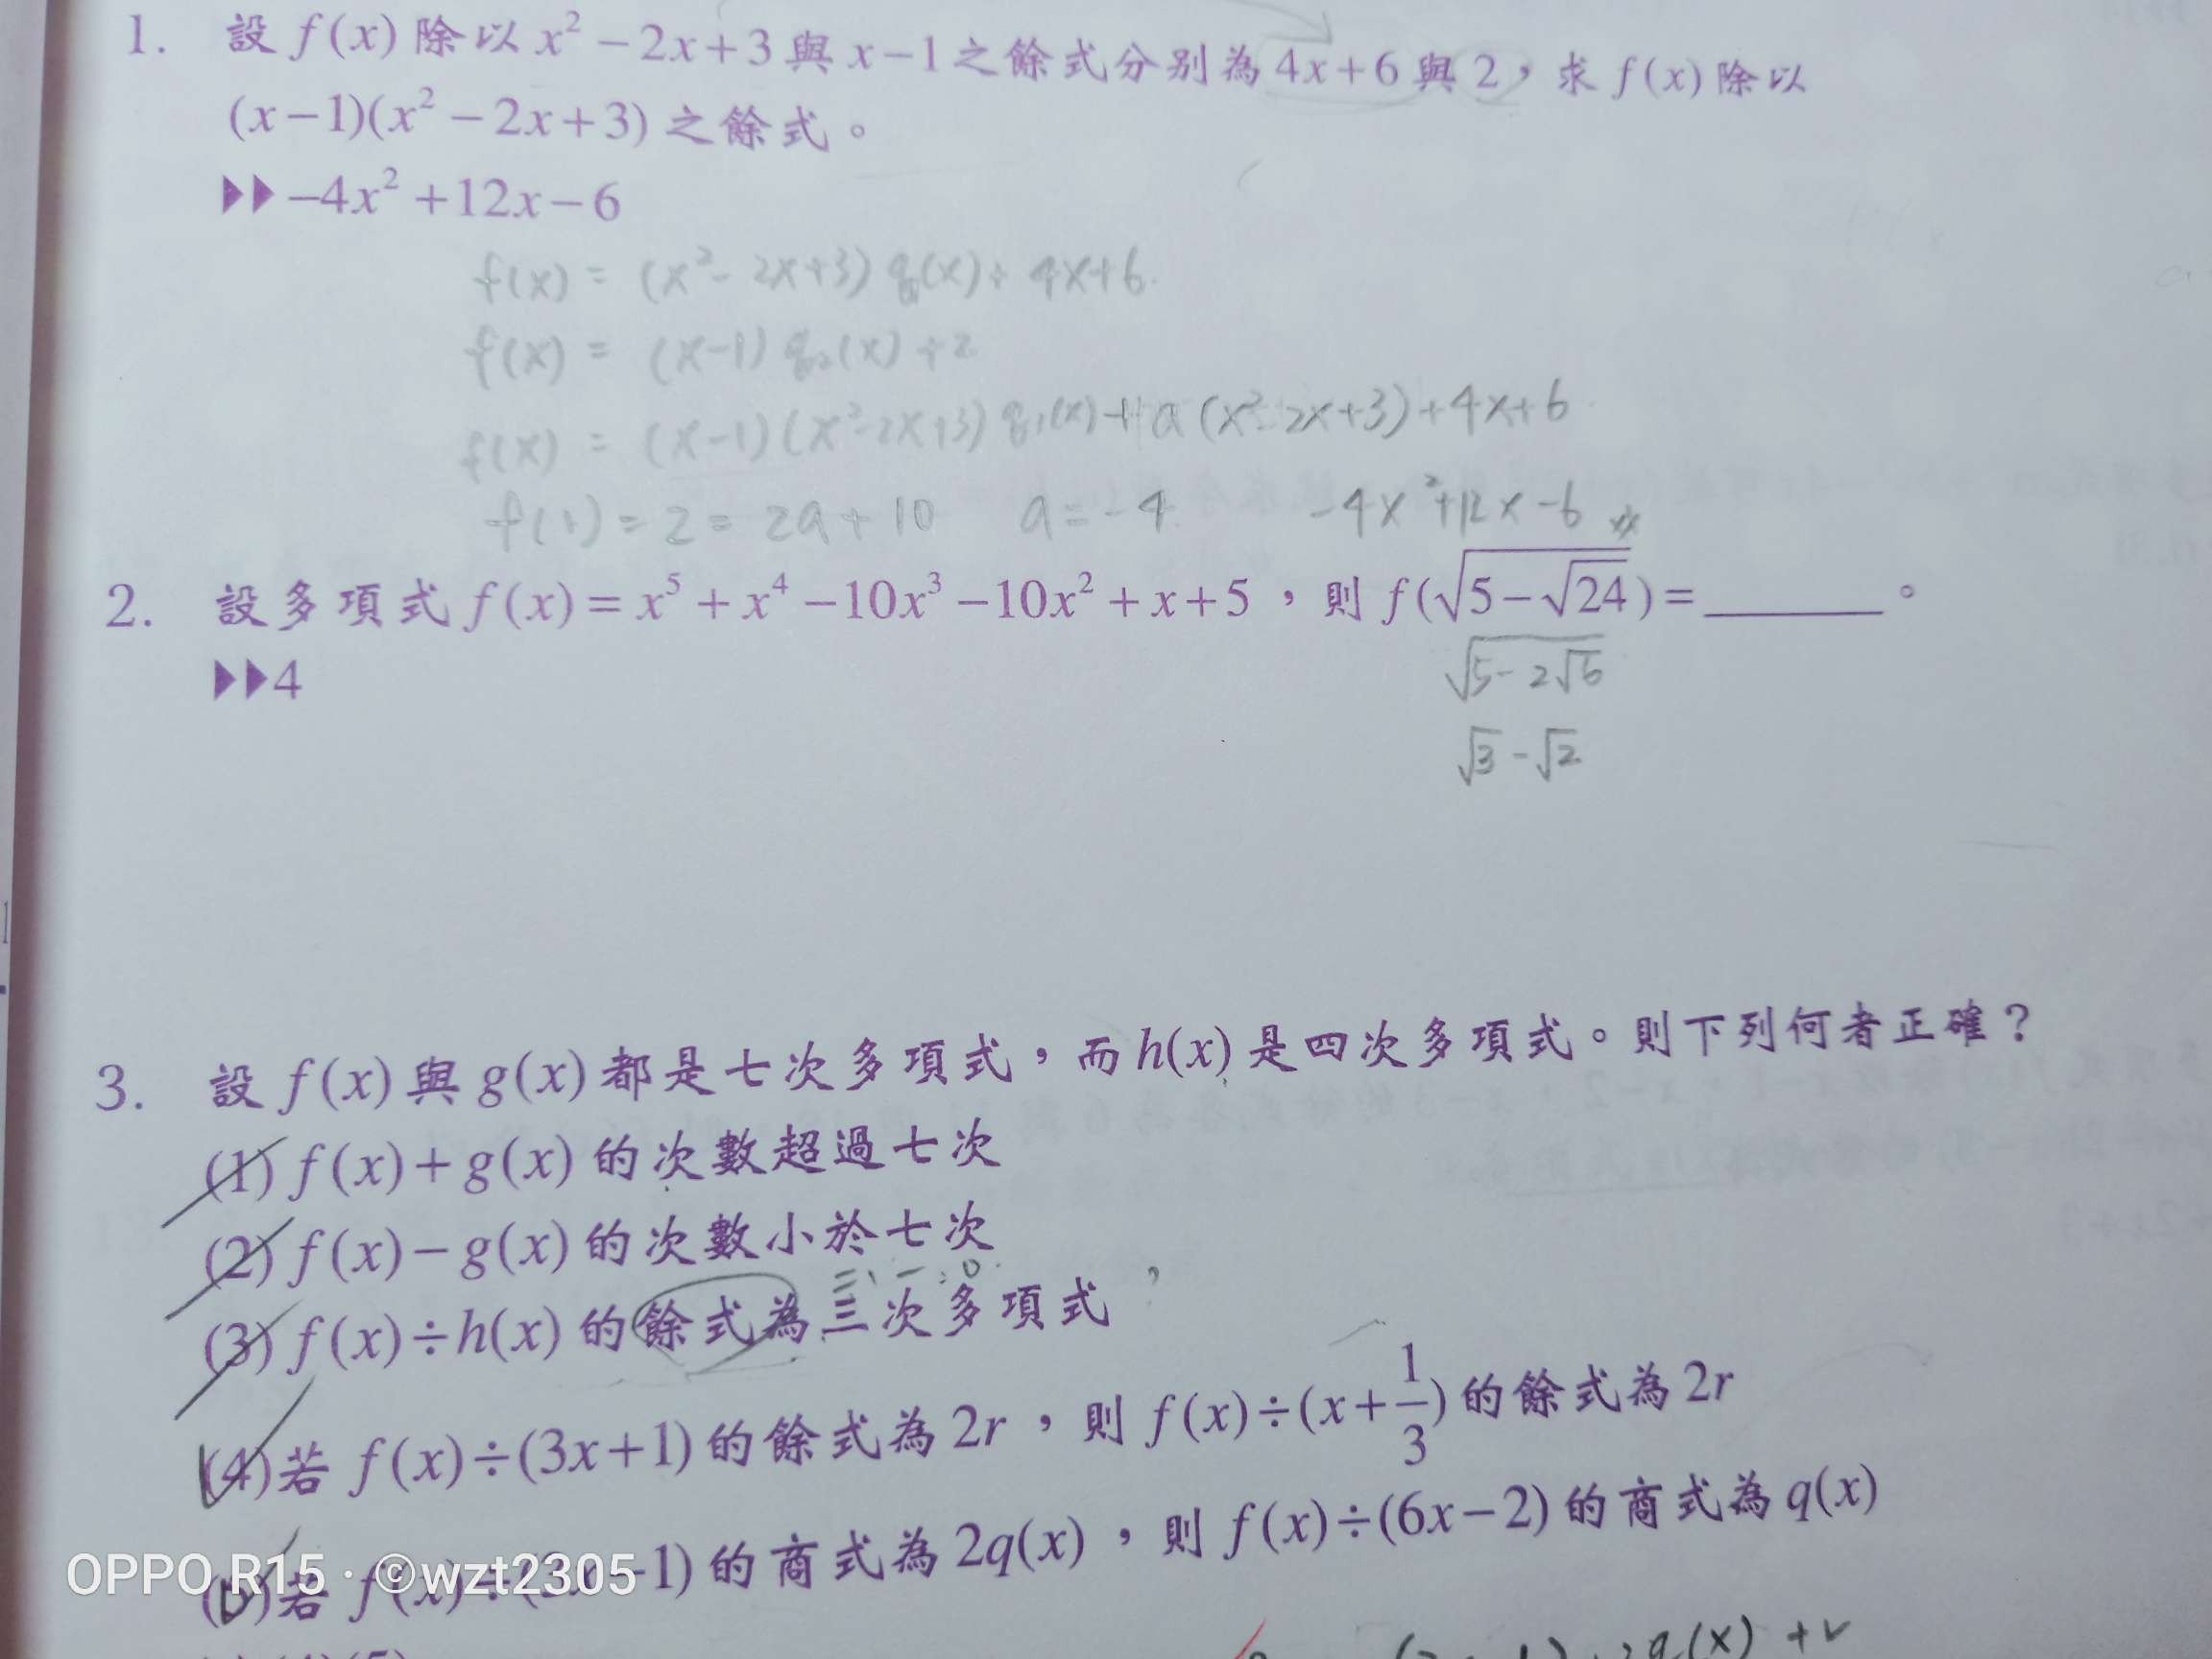 1. 設 f(x) 除以 x² − 2x + 3 與 x − 1 之餘式分別為 4x + 6 與 2，求 f(x) 除以
(x − 1)(x² − 2x + 3) 之餘式。
▶▶ −4x² + 12x − 6
f(x) = (x² - 2x+3) q(x) + 4x+6
f(x) = (x-1) q₂(x) + 2
f(x) = (x-1)(x²-2x+3) q₁(x) + a(x²-2x+3)+4x+6
f(1) = 2 = 2a + 10 a = -4 -4x²+12x-6
2. 設多項式 f(x) = x⁵ + x⁴ − 10x³ − 10x² + x + 5，則 f(√(5 − √24)) = ______。
▶▶4
√(5 - 2√6)
√3 - √2
3. 設 f(x) 與 g(x) 都是七次多項式，而 h(x) 是四次多項式。則下列何者正確？
(1) f(x) + g(x) 的次數超過七次
(2) f(x) − g(x) 的次數小於七次
(3) f(x) ÷ h(x) 的餘式為三次多項式
(4)若 f(x) ÷ (3x + 1) 的餘式為 2r，則 f(x) ÷ (x + 1/3) 的餘式為 2r
(5)若 f(x) ÷ (3x − 1) 的商式為 2q(x)，則 f(x) ÷ (6x − 2) 的商式為 q(x)
OPPO R15 · ©wzt2305